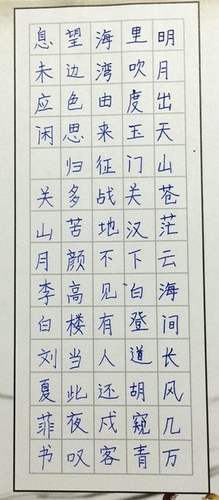 明月出天山苍茫云海间长风几万
里吹度玉门关汉下白登道胡窥青
海湾由来征战地不见有人还戍客
望边色思归多苦颜高楼当此夜叹
息未应闲 关山月李白刘夏菲书